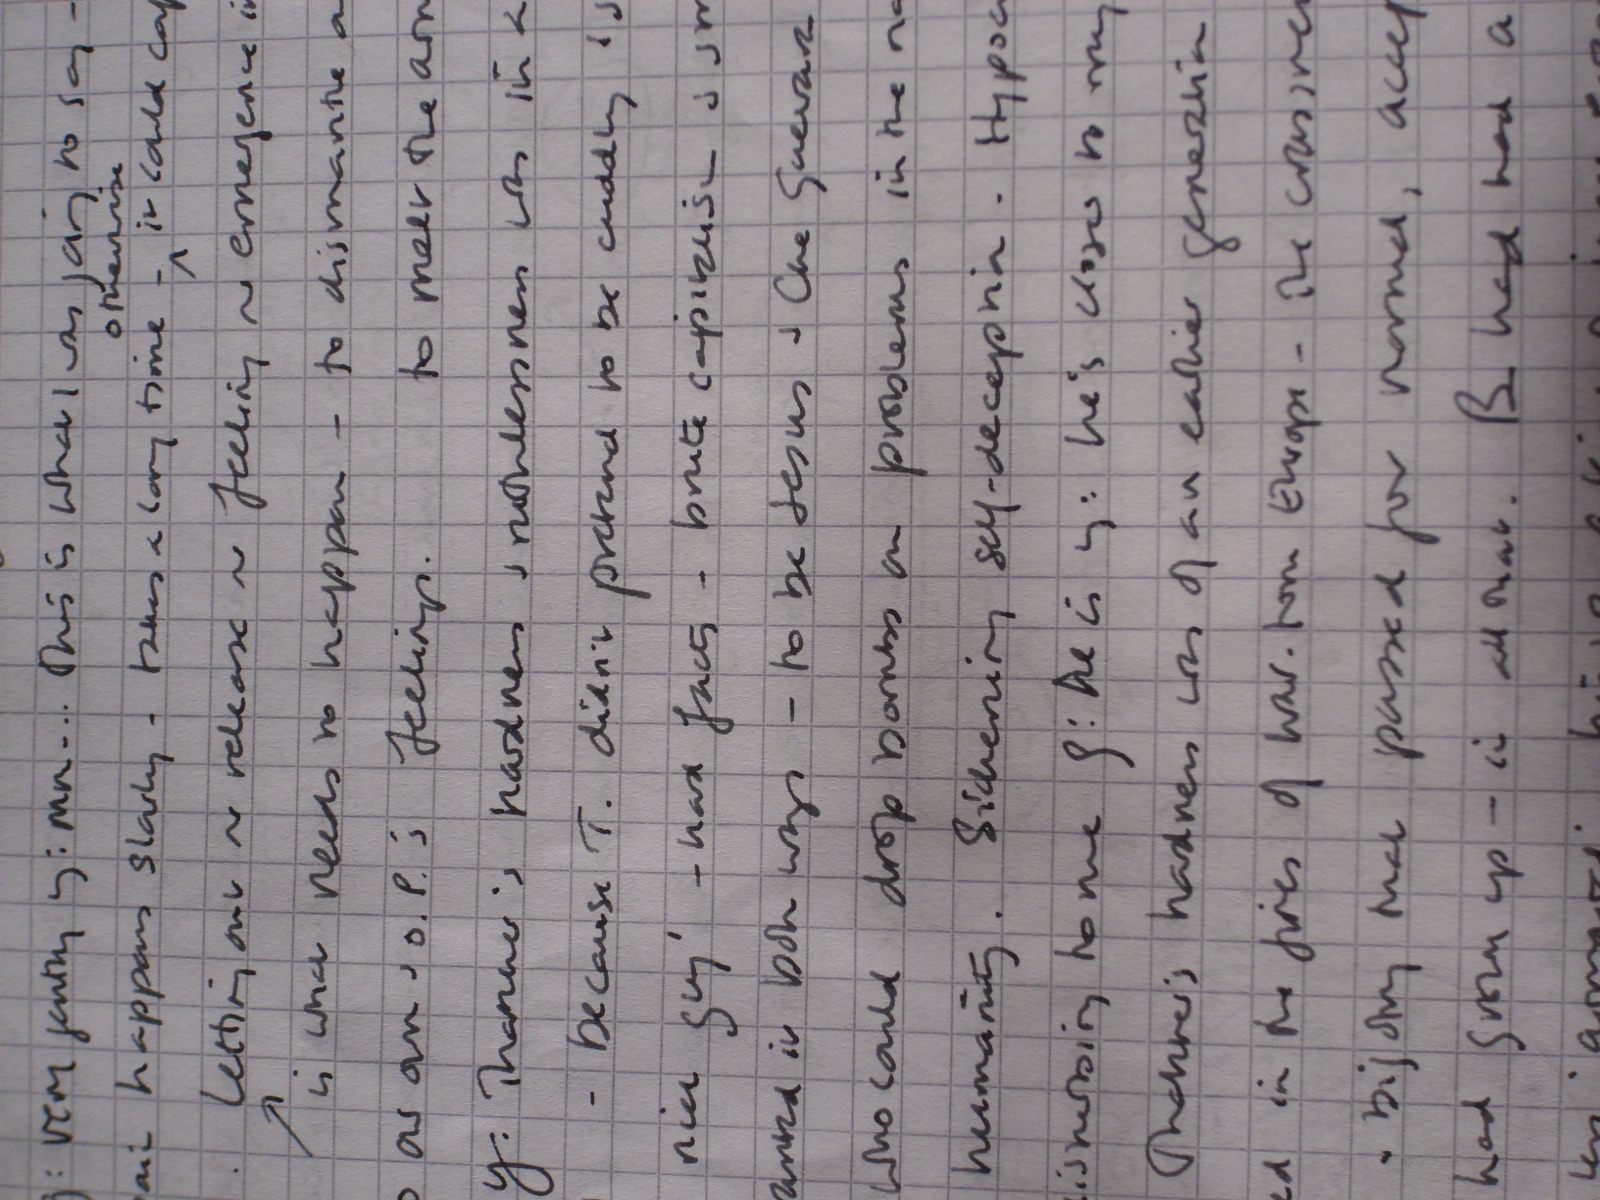 : very gently y: mm... This is what I was going to say -
otherwise
happens slowly - takes a long time - it could
. Letting out ~ release ~ feeling ~ emergence in
is what needs to happen - to dismantle
to meet the
our own + o.P.'s feelings.
y: Thatcher's hardness + ruthlessness was in a
- because T. didn't pretend to be cuddly
nice guy' - hard facts - brute capitalism
it both ways - to be Jesus + Che Guevara
who could drop bombs on problems in the
humanity. Sickening self-deception.
to me g: he is y: he's closer to my
Thatcher's hardness was of an earlier generation
in the fires of war-torn Europe - the
bigotry that passed for normal,
had grown up - in all that. B had had a